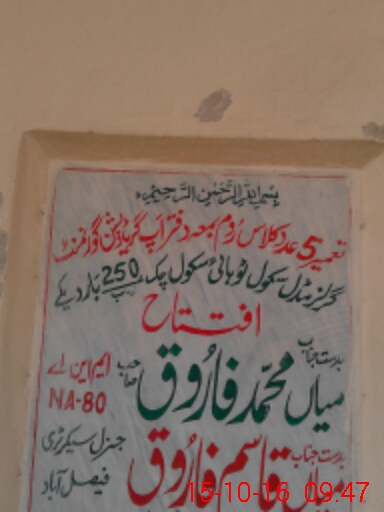 بسم اللہ الرحمن الرحیم
تعمیر 5 عدد کلاس روم بمعہ دفتر اپ گریڈیشن گورنمنٹ
گرلز مڈل سکول ٹو ہائی سکول چک 250 ر ب بار دیکے
افتتاح
بدست جناب
میاں محمد فاروق صاحب
ایم این اے
NA-80
بدست جناب
میاں قاسم فاروق
جنرل سیکرٹری
فیصل آباد
15-10-16 09:47